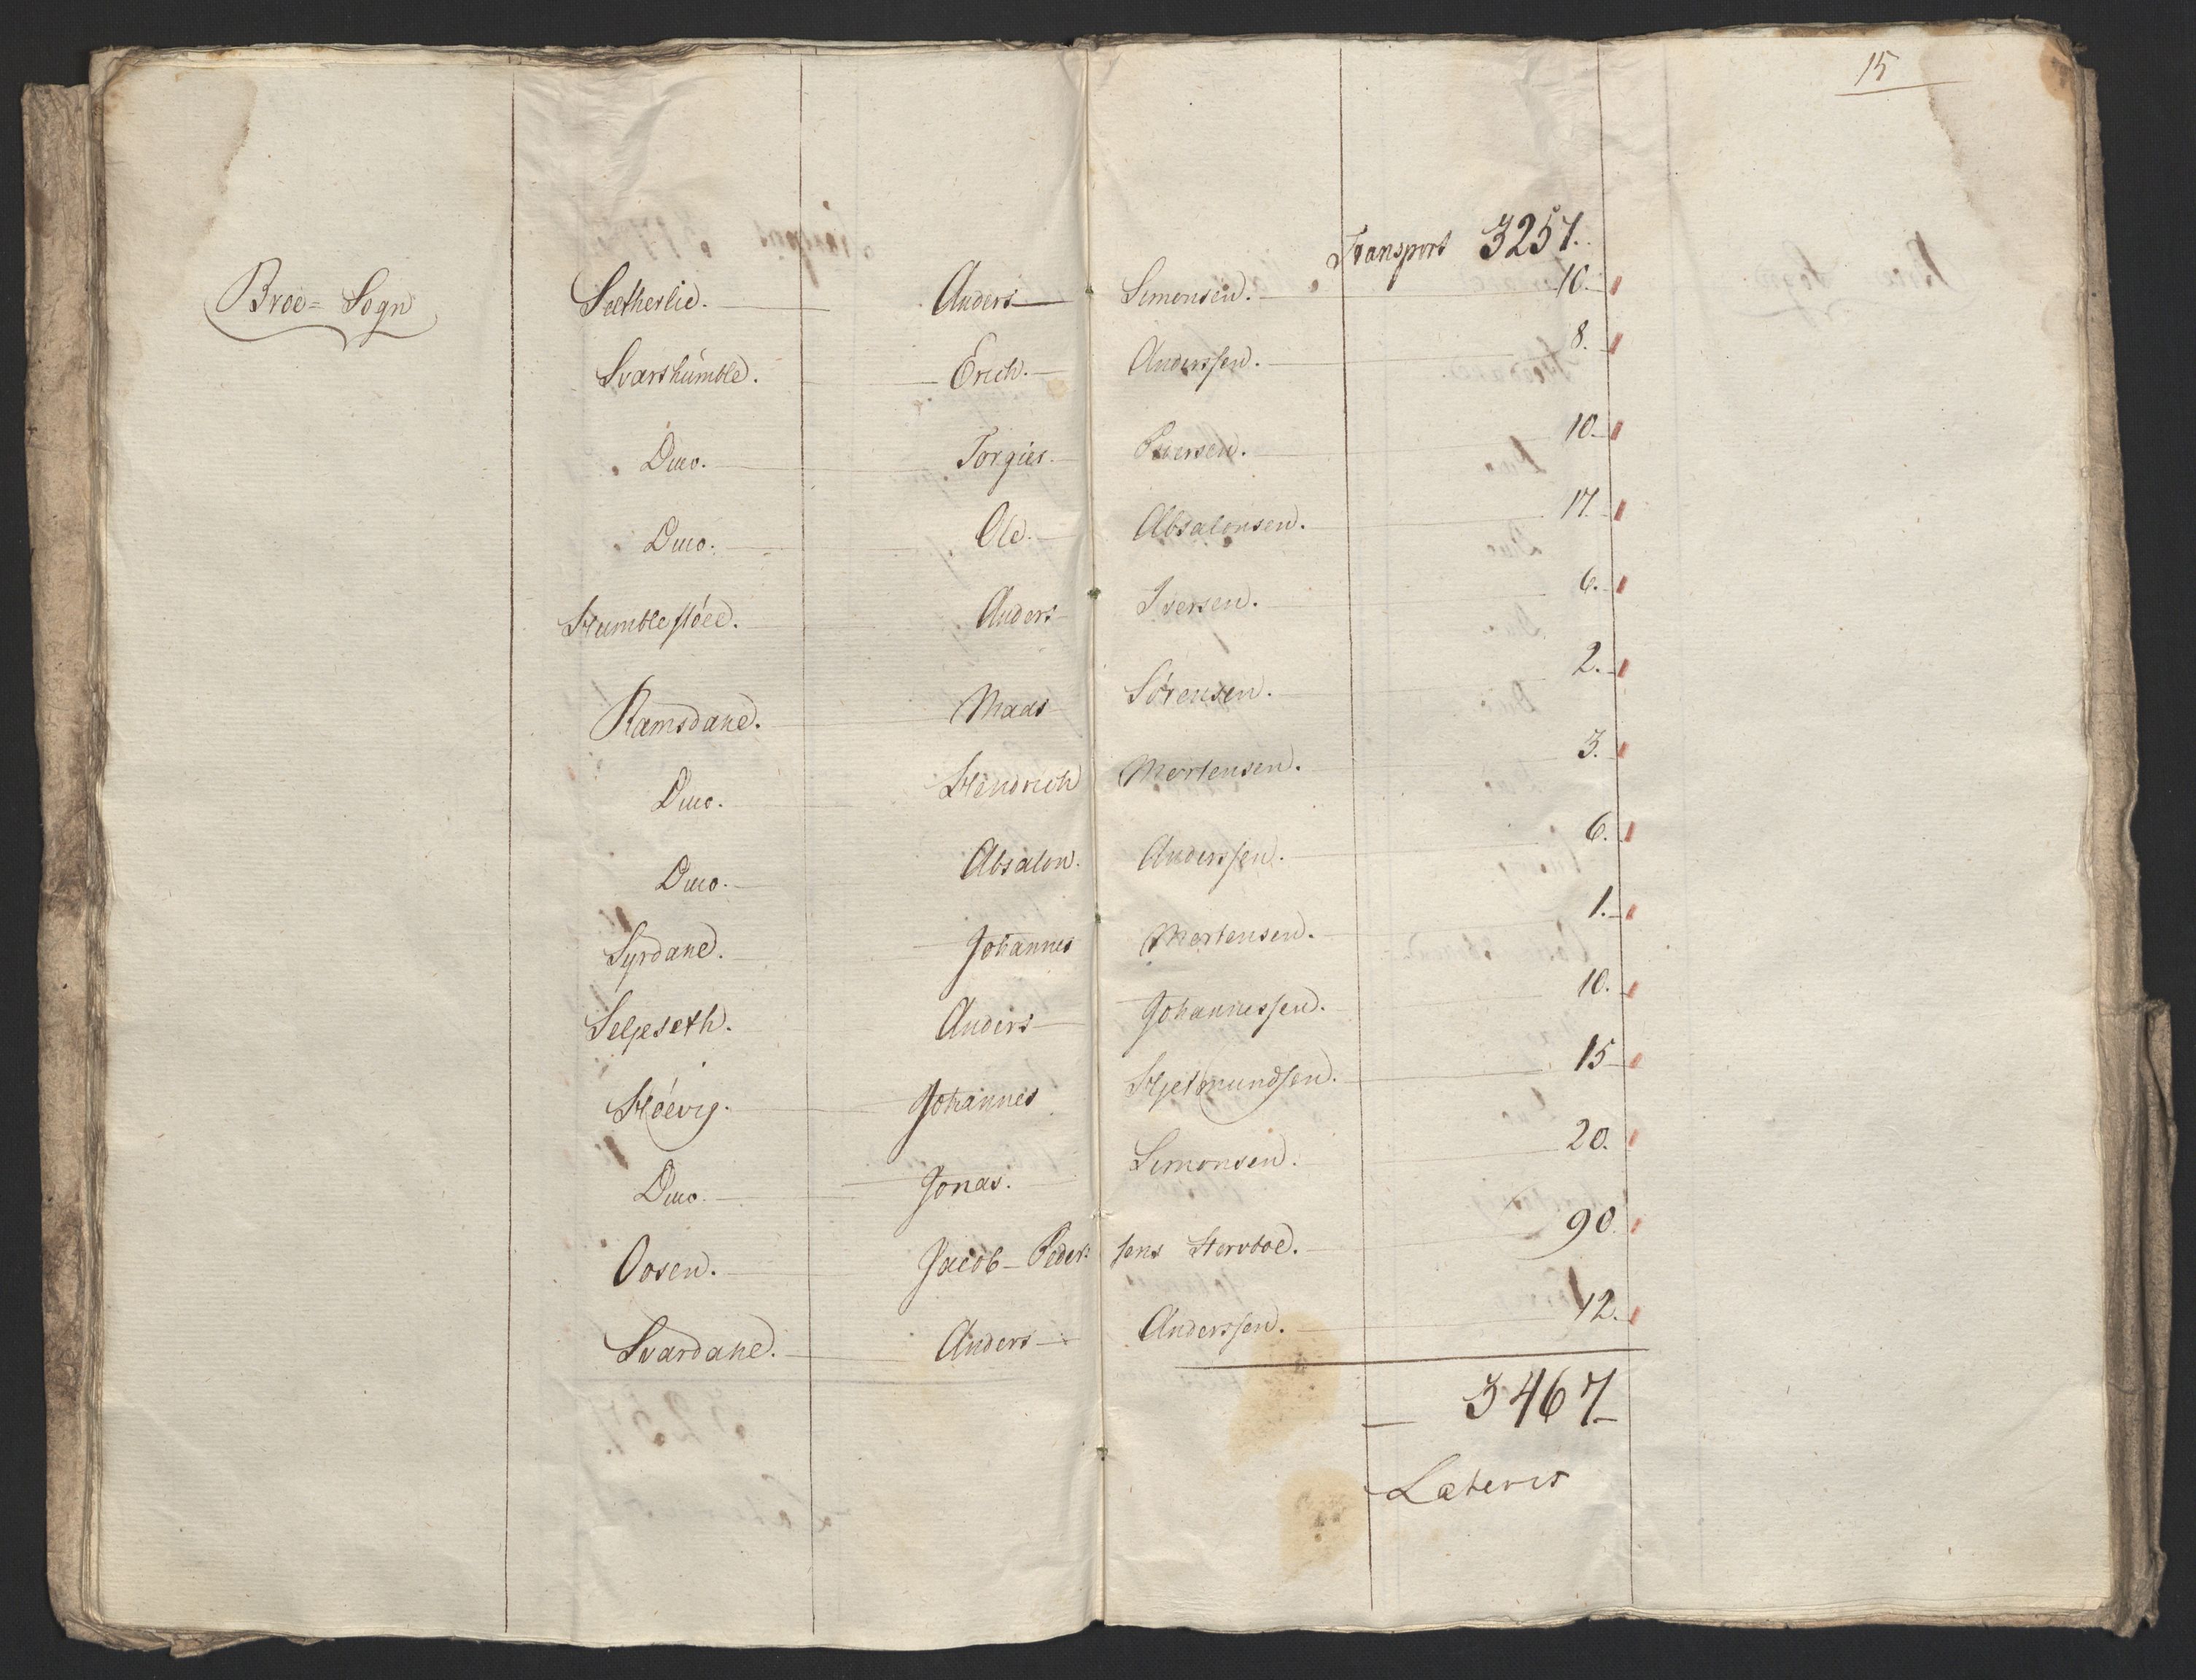 15
Transport 3257.
Broe= Sogn Sætherlie. Anders Simonsen. 10.
Svarshumble. Erich. Anderssen. 8.
Dito. Torgier. 10.
Dito. Ole. Absalonsen. 17.
Humblestøel. Anders Iversen. 6.
Ramsdane. Maas Sørensen. 2.
Dito. Hendrich Mortensen. 3.
Dito. Absalon. Anderssen. 6.
Syrdane. Johannes Mortensen. 1.
Seljeseth. Anders Johannessen. 10.
Høevig. Johannes Hjelmundsen. 15
Dito. Jonas. Simonsen. 20.
Oosen. Jacob Peder= sens Horvboe. 90.
Svardane. Anders Anderssen. 12.
3467
Lateris